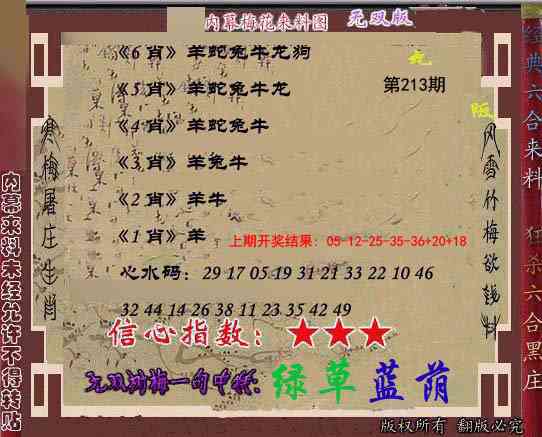 内幕梅花来料图 无双版
《6肖》羊蛇兔牛龙狗
《5肖》羊蛇兔牛龙
第213期
《4肖》羊蛇兔牛
《3肖》羊兔牛
《2肖》羊牛
《1肖》羊
上期开奖结果：05-12-25-35-36+20+18
心水码：29 17 05 19 31 21 33 22 10 46
32 44 14 26 38 11 23 35 42 49
信心指数：★★★
无双
梅一句中特：绿草蓝荫
版权所有 翻版必究
寒梅屠庄生肖
风雪竹梅欲钱料
内幕来料未经允许不得转贴
经典六合来料 狂杀六合黑庄